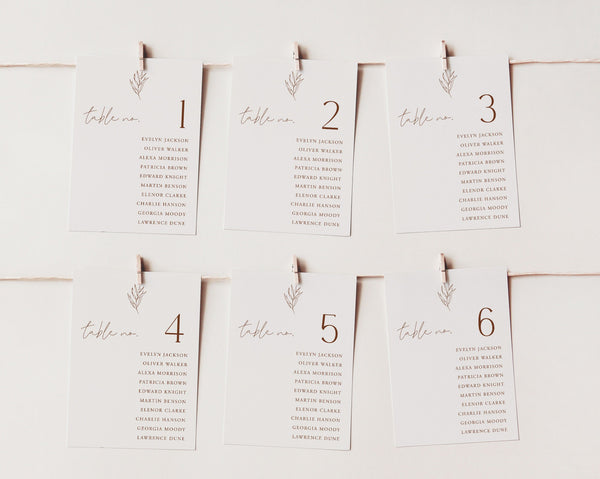 table no. 1
EVELYN JACKSON
OLIVER WALKER
ALEXA MORRISON
PATRICIA BROWN
EDWARD KNIGHT
MARTIN BENSON
ELENOR CLARKE
CHARLIE HANSON
GEORGIA MOODY
LAWRENCE DUNE
table no. 2
EVELYN JACKSON
OLIVER WALKER
ALEXA MORRISON
PATRICIA BROWN
EDWARD KNIGHT
MARTIN BENSON
ELENOR CLARKE
CHARLIE HANSON
GEORGIA MOODY
LAWRENCE DUNE
table no. 3
EVELYN JACKSON
OLIVER WALKER
ALEXA MORRISON
PATRICIA BROWN
EDWARD KNIGHT
MARTIN BENSON
ELENOR CLARKE
CHARLIE HANSON
GEORGIA MOODY
LAWRENCE DUNE
table no. 4
EVELYN JACKSON
OLIVER WALKER
ALEXA MORRISON
PATRICIA BROWN
EDWARD KNIGHT
MARTIN BENSON
ELENOR CLARKE
CHARLIE HANSON
GEORGIA MOODY
LAWRENCE DUNE
table no. 5
EVELYN JACKSON
OLIVER WALKER
ALEXA MORRISON
PATRICIA BROWN
EDWARD KNIGHT
MARTIN BENSON
ELENOR CLARKE
CHARLIE HANSON
GEORGIA MOODY
LAWRENCE DUNE
table no. 6
EVELYN JACKSON
OLIVER WALKER
ALEXA MORRISON
PATRICIA BROWN
EDWARD KNIGHT
MARTIN BENSON
ELENOR CLARKE
CHARLIE HANSON
GEORGIA MOODY
LAWRENCE DUNE